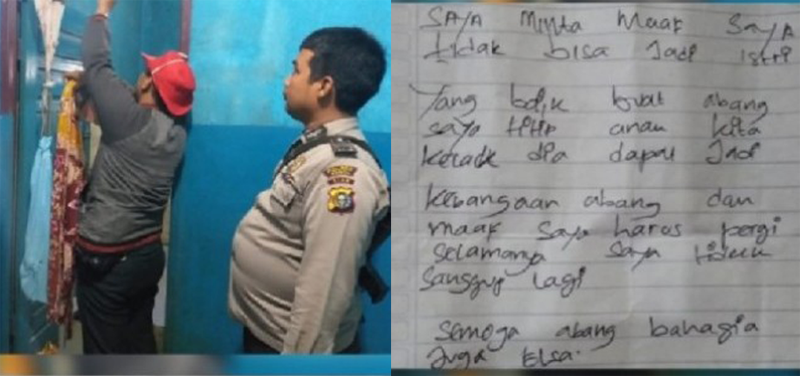 SAYA Minta Maaf SAYA
tidak bisa Jadi istri
Yang baik buat abang
saya titip anak kita
kelak dia dapat Jadi
kebanggaan abang dan
maaf saya harus pergi
selamanya saya tidak
sanggup lagi
semoga abang bahagia
Juga Elsa.